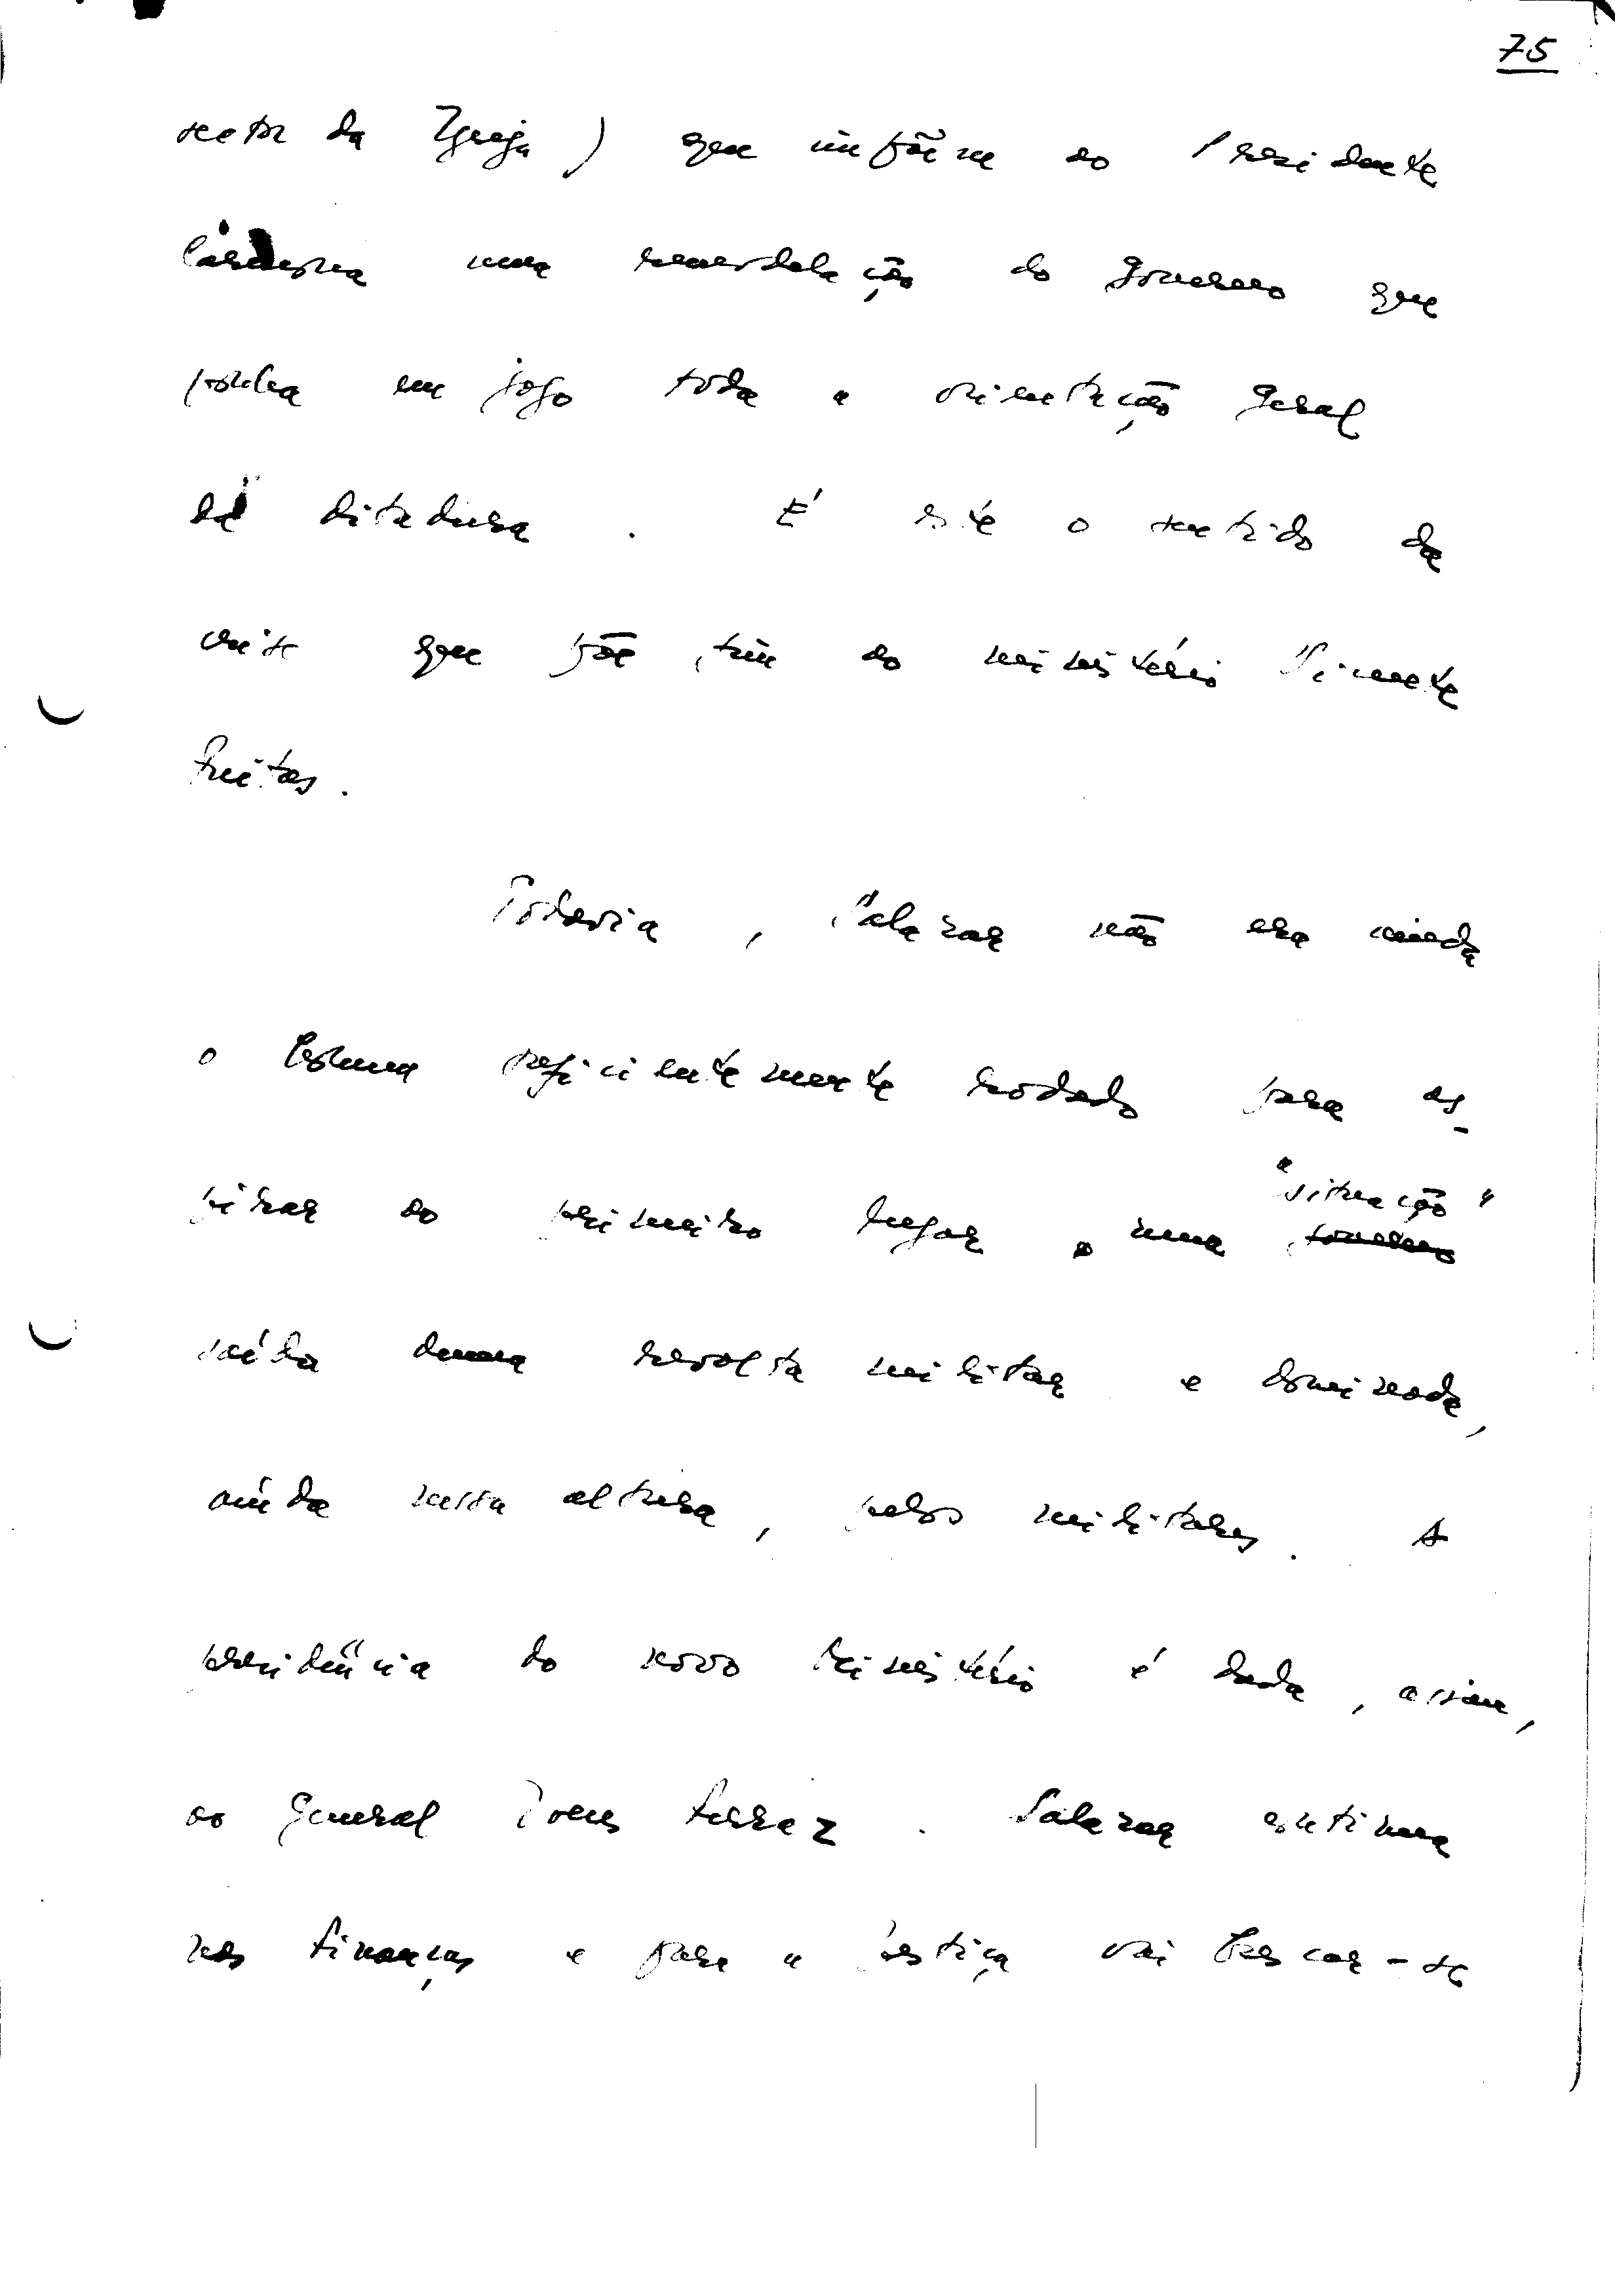 75
sector da Igreja) que impõem ao Presidente
Carmona uma remodelação do governo que
ponha em jogo toda a orientação geral
da ditadura. É este o sentido da
crise que põe fim ao ministério Vicente
Freitas.
Todavia, Salazar não era ainda
o homem suficientemente rodado para as-
pirar ao primeiro lugar numa "situação"
saída duma revolta militar e dominada,
ainda nessa altura, pelos militares. A
presidência do novo Ministério é dada, assim,
ao General Ivens Ferraz. Salazar continua
nas Finanças e para a Justiça vai buscar-se